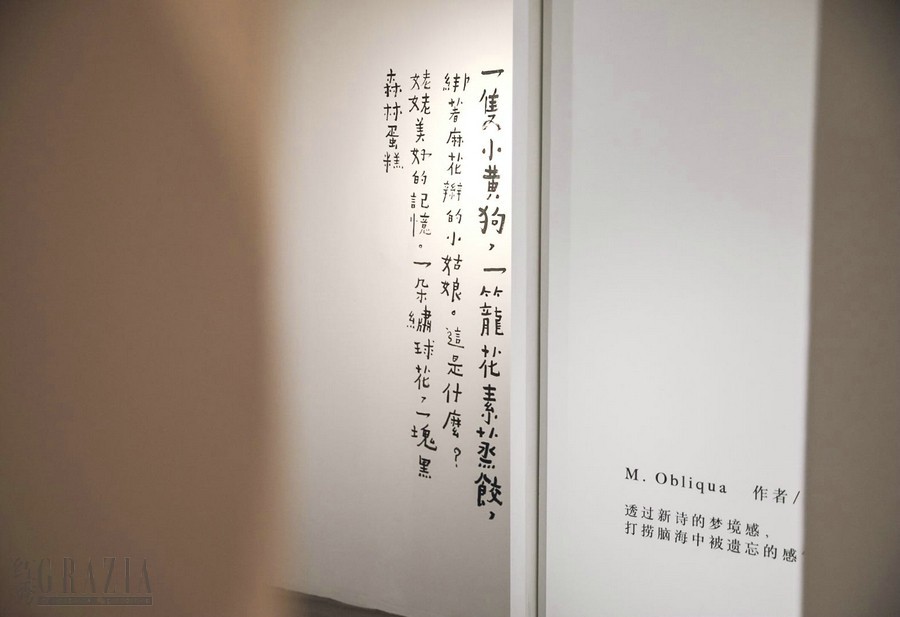 一隻小黃狗，一籠花素蒸餃，
綁著麻花辮的小姑娘。這是什麼？
姥姥美好的記憶。一朵繡球花，一塊黑
森林蛋糕
M. Obliqua 作者/
透过新诗的梦境感，
打捞脑海中被遗忘的感
GRAZIA